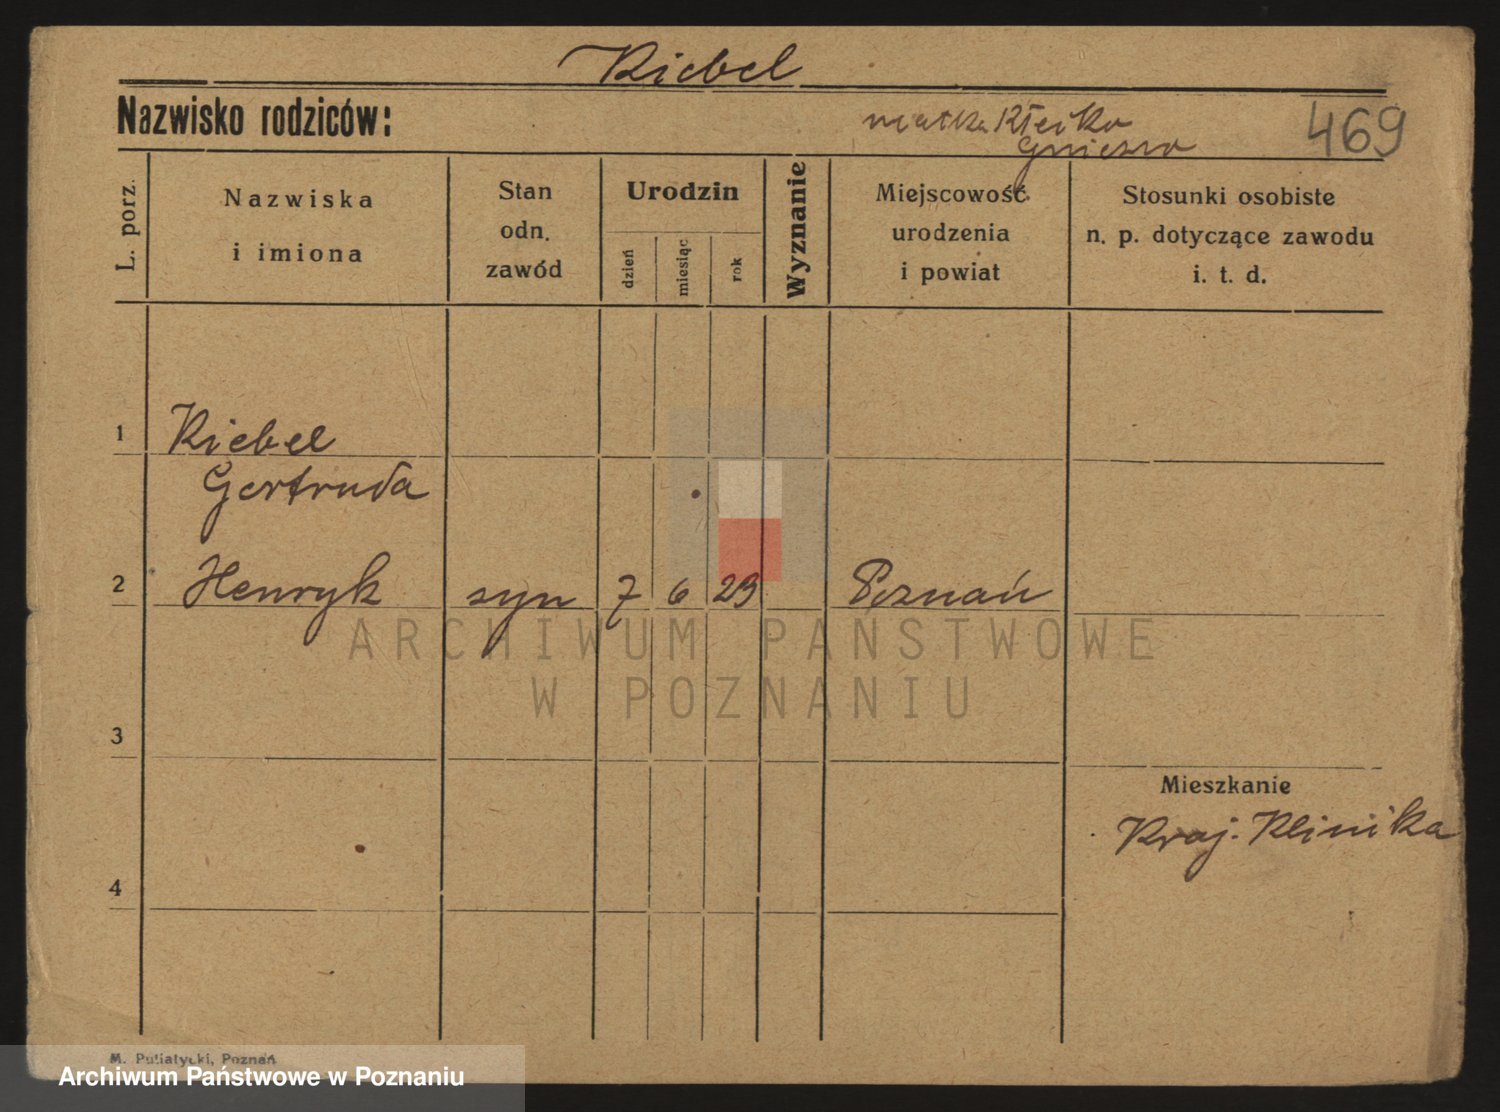 Riebel
Nazwisko rodziców:
matka Kłecko
Gniezno
469
L. porz.
Nazwiska
i imiona
Stan
odn.
zawód
Urodzin
dzień
miesiąc
rok
Wyznanie
Miejscowość
urodzenia
i powiat
Stosunki osobiste
n. p. dotyczące zawodu
i. t. d.
1 Riebel
Gertruda
2 Henryk syn 7 6 23 Poznań
ARCHIWUM PAŃSTWOWE
W POZNANIU
3
Mieszkanie
Kraj. Klinika
4
M. Putiatycki, Poznań
Archiwum Państwowe w Poznaniu